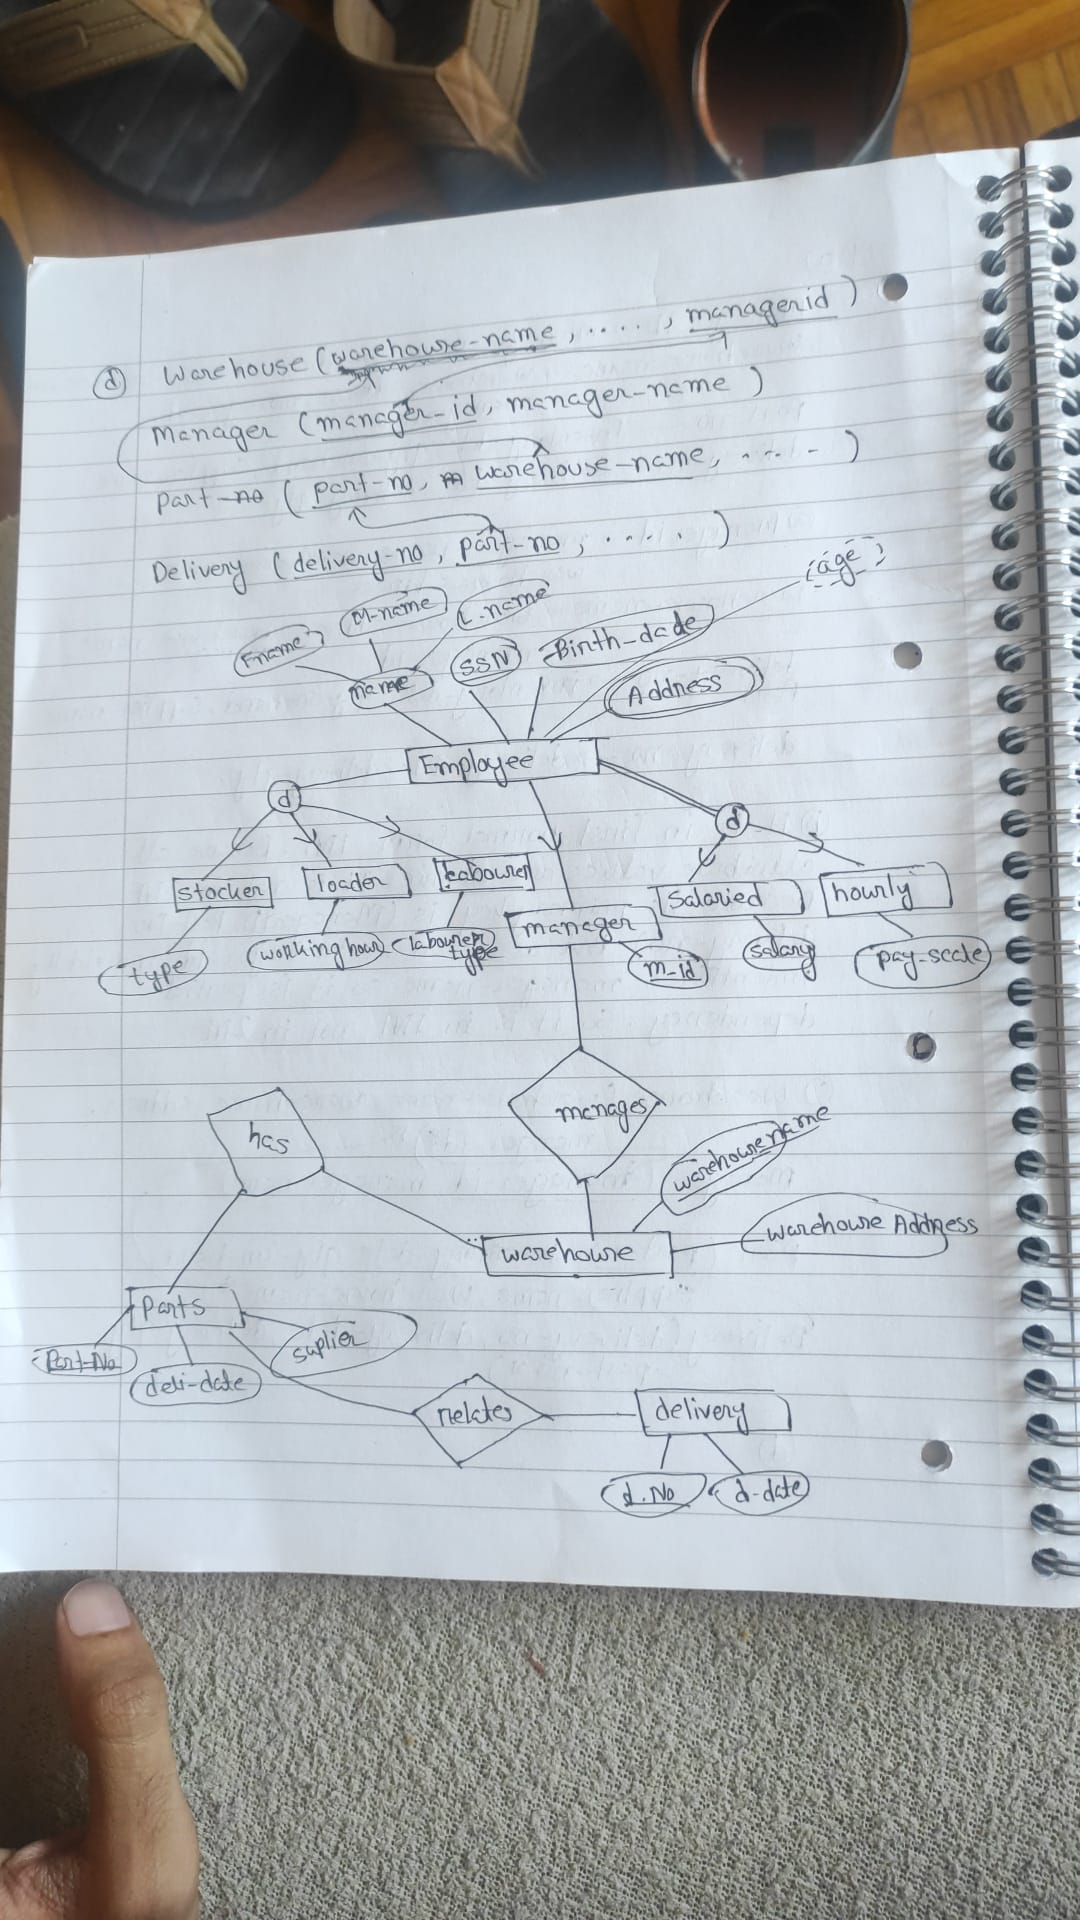 d Warehouse (warehouse-name, ...., managerid)
Manager (manager-id, manager-name)
part-no (part-no, warehouse-name, ....)
Delivery (delivery-no, part-no, ....)
age
M-name L.name
Fname SSN Birth-date
name Address
Employee
d d
stocker loader Labourer Salaried hourly
manager
type working hour labourer type m-id salary pay-scale
manages
has
warehouse name
warehouse Address
warehouse
Parts
Part-No suplier
deli-date
relates delivery
d.No d-date